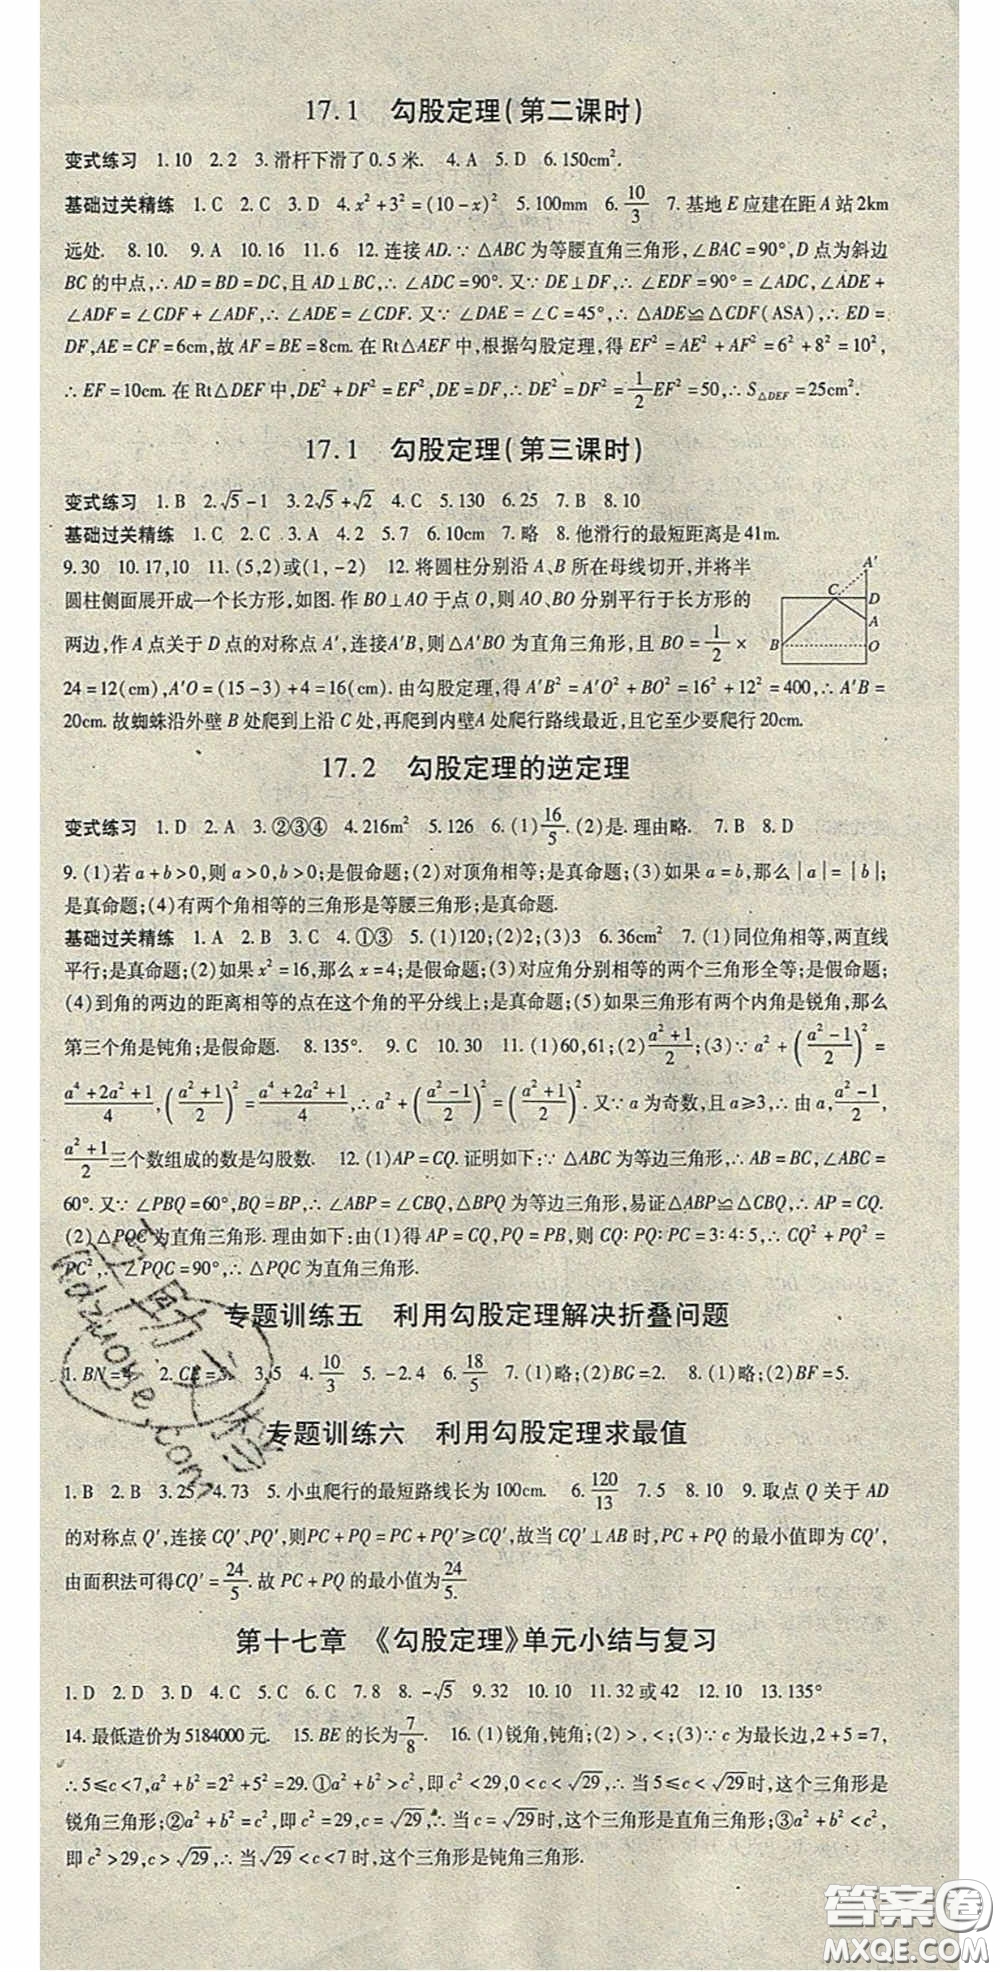 17.1 勾股定理(第二课时)
变式练习 1.10 2.2 3.滑杆下滑了0.5米. 4.A 5.D 6.150cm².
基础过关精练 1.C 2.C 3.D 4.x²+3²=(10-x)² 5.100mm 6.10/3 7.基地E应建在距A站2km
远处. 8.10. 9.A 10.16 11.6 12.连接AD.∵△ABC为等腰直角三角形,∠BAC=90°,D点为斜边
BC的中点,∴AD=BD=DC,且AD⊥BC,∴∠ADC=90°.又∵DE⊥DF,∴∠EDF=90°=∠ADC,∠ADE+
∠ADF=∠CDF+∠ADF,∴∠ADE=∠CDF.又∵∠DAE=∠C=45°,∴△ADE≌△CDF(ASA),∴ED=
DF,AE=CF=6cm,故AF=BE=8cm.在Rt△AEF中,根据勾股定理,得EF²=AE²+AF²=6²+8²=10²,
∴EF=10cm.在Rt△DEF中,DE²+DF²=EF²,DE=DF,∴DE²=DF²=1/2EF²=50,∴S△DEF=25cm².
17.1 勾股定理(第三课时)
变式练习 1.B 2.√5-1 3.2√5+√2 4.C 5.130 6.25 7.B 8.10
基础过关精练 1.C 2.C 3.A 4.2 5.7 6.10cm 7.略 8.他滑行的最短距离是41m.
9.30 10.17,10 11.(5,2)或(1,-2) 12.将圆柱分别沿A、B所在母线切开,并将半
圆柱侧面展开成一个长方形,如图.作BO⊥AO于点O,则AO、BO分别平行于长方形的
两边,作A点关于D点的对称点A′,连接A′B,则△A′BO为直角三角形,且BO=1/2×
A′
C D
A
B O
24=12(cm),A′O=(15-3)+4=16(cm).由勾股定理,得A′B²=A′O²+BO²=16²+12²=400,∴A′B=
20cm.故蜘蛛沿外壁B处爬到上沿C处,再爬到内壁A处爬行路线最近,且它至少要爬行20cm.
17.2 勾股定理的逆定理
变式练习 1.D 2.A 3.②③④ 4.216m² 5.126 6.(1)16/5.(2)是.理由略. 7.B 8.D
9.(1)若a+b>0,则a>0,b>0;是假命题;(2)对顶角相等;是真命题;(3)如果a=b,那么|a|=|b|;
是真命题;(4)有两个角相等的三角形是等腰三角形;是真命题.
基础过关精练 1.A 2.B 3.C 4.①③ 5.(1)120;(2)2;(3)3 6.36cm² 7.(1)同位角相等,两直线
平行;是真命题;(2)如果x²=16,那么x=4;是假命题;(3)对应角分别相等的两个三角形全等;是假命题;
(4)到角的两边的距离相等的点在这个角的平分线上;是真命题;(5)如果三角形有两个内角是锐角,那么
第三个角是钝角;是假命题. 8.135°. 9.C 10.30 11.(1)60,61;(2)(a²+1)/2;(3)∵a²+((a²-1)/2)²=
(a⁴+2a²+1)/4,((a²+1)/2)²=(a⁴+2a²+1)/4,∴a²+((a²-1)/2)²=((a²+1)/2)².又∵a为奇数,且a≥3,∴由a,(a²-1)/2,
(a²+1)/2三个数组成的数是勾股数. 12.(1)AP=CQ.证明如下:∵△ABC为等边三角形,∴AB=BC,∠ABC=
60°.又∵∠PBQ=60°,BQ=BP,∴∠ABP=∠CBQ,△BPQ为等边三角形,易证△ABP≌△CBQ,∴AP=CQ.
(2)△PQC为直角三角形.理由如下:由(1)得AP=CQ,PQ=PB,则CQ∶PQ∶PC=3∶4∶5,∴CQ²+PQ²=
PC²,∴∠PQC=90°,∴△PQC为直角三角形.
专题训练五 利用勾股定理解决折叠问题
1.BN=4. 2.CE=3. 3.5 4.10/3 5.-2.4 6.18/5 7.(1)略;(2)BG=2. 8.(1)略;(2)BF=5.
专题训练六 利用勾股定理求最值
1.B 2.B 3.25 4.73 5.小虫爬行的最短路线长为100cm. 6.120/13 7.5 8.10 9.取点Q关于AD
的对称点Q′,连接CQ′、PQ′,则PC+PQ=PC+PQ′≥CQ′,故当CQ′⊥AB时,PC+PQ的最小值即为CQ′,
由面积法可得CQ′=24/5.故PC+PQ的最小值为24/5.
第十七章 《勾股定理》单元小结与复习
1.D 2.D 3.D 4.C 5.C 6.C 7.8 8.-√5 9.32 10.10 11.32或42 12.10 13.135°
14.最低造价为5184000元. 15.BE的长为7/8. 16.(1)锐角,钝角;(2)>,<;(3)∵c为最长边,2+5=7,
∴5≤c<7,a²+b²=2²+5²=29.①a²+b²>c²,即c²<29,0<c<√29,∴当5≤c<√29时,这个三角形是
锐角三角形;②a²+b²=c²,即c²=29,c=√29,∴当c=√29时,这个三角形是直角三角形;③a²+b²<c²,
即c²>29,c>√29,∴当√29<c<7时,这个三角形是钝角三角形.
答案圈
MXQE.COM